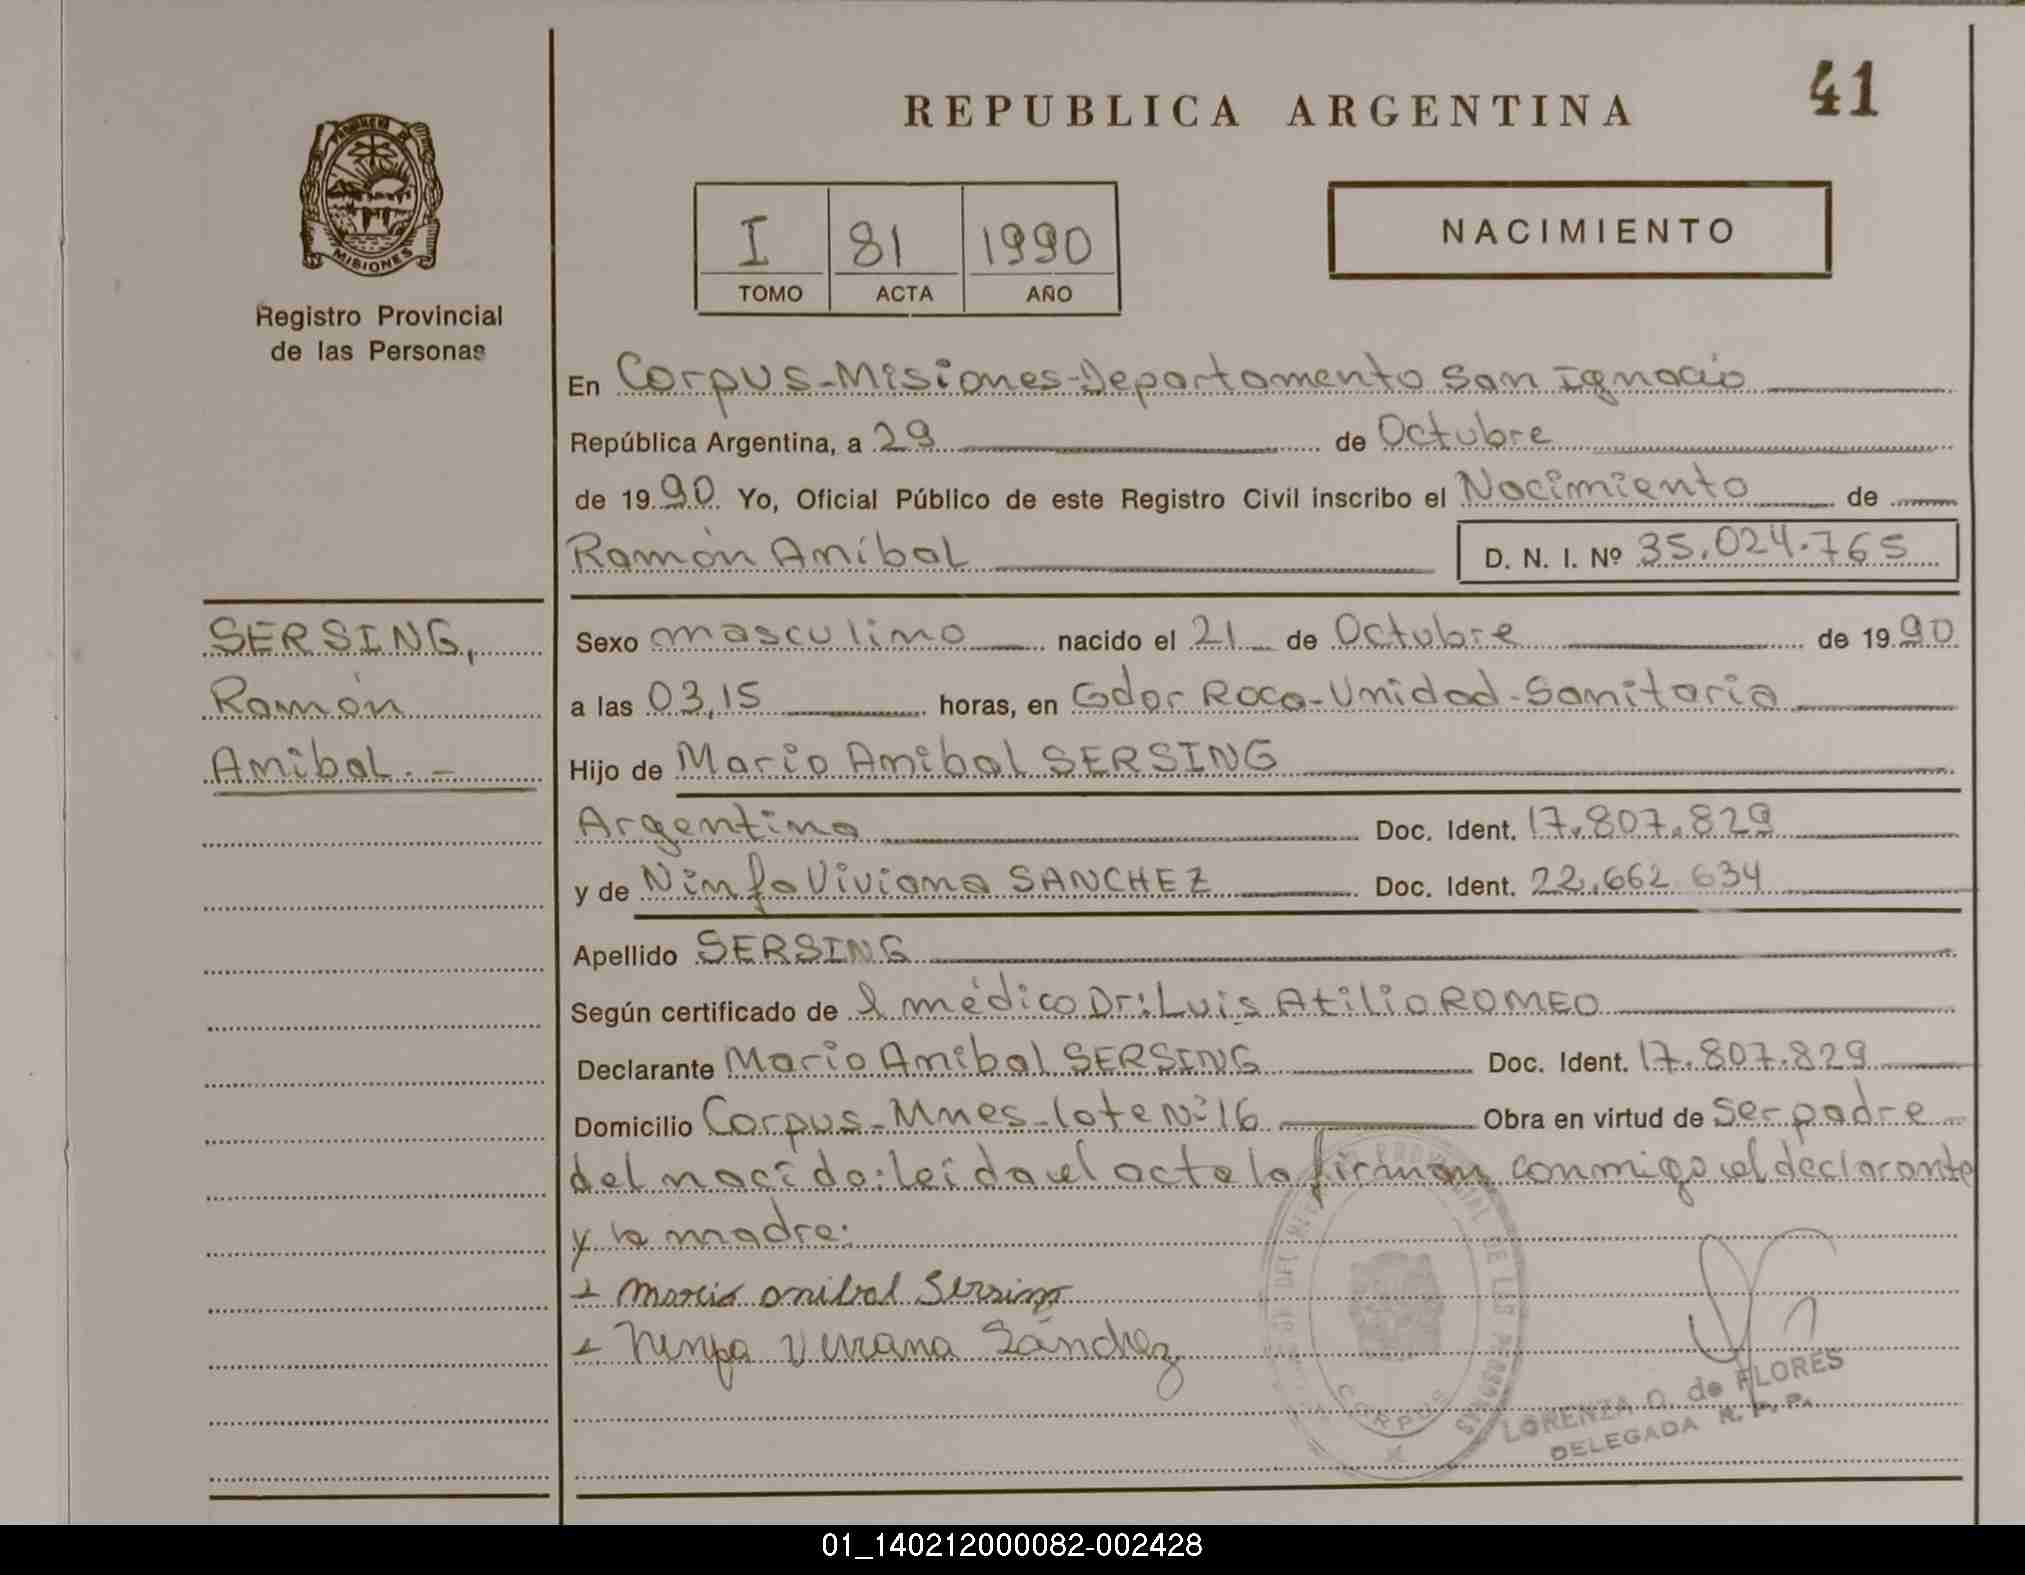 41
REPUBLICA ARGENTINA
PROVINCIA DE
MISIONES
Registro Provincial
de las Personas
I 81 1990
TOMO ACTA AÑO
NACIMIENTO
En Corpus-Misiones-Departamento San Ignacio
República Argentina, a 29 de Octubre
de 1990 Yo, Oficial Público de este Registro Civil inscribo el Nacimiento de
Ramón Aníbal D. N. I. Nº 35.024.765
SERSING,
Ramón
Anibal.-
Sexo masculino nacido el 21 de Octubre de 1990
a las 03,15 horas, en Gdor Roca-Unidad-Sanitaria
Hijo de Mario Anibal SERSING
Argentino Doc. Ident. 17.807.829
y de Ninfa Viviana SANCHEZ Doc. Ident. 22.662.634
Apellido SERSING
Según certificado de l médico Dr: Luis Atilio ROMEO
Declarante Mario Anibal SERSING Doc. Ident. 17.807.829
Domicilio Corpus-Mnes-lote Nº 16 Obra en virtud de ser padre
del nacido: leida el acta la firman conmigo el declarante
y la madre:
Mario anibal Sersing
Ninfa Viviana Sánchez
PROVINCIAL DE LAS PERSONAS
CORPUS
LORENZA O. de FLORES
DELEGADA R. P. P.
01_140212000082-002428